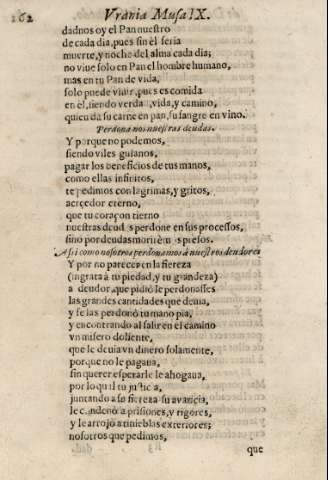 162 Vrania Musa IX.
dadnos oy el Pan nuestro
de cada dia, pues sin èl seria
muerte, y noche del alma cada dia;
no viue solo en Pan el hombre humano,
mas en tu Pan de vida,
solo puede viuir, pues es comida
en el, siendo verda, vida, y camino,
quien da su carne en pan, su sangre en vino.
Perdona nos nuestras deudas.
Y porque no podemos,
siendo viles gusanos,
pagar los beneficios de tus manos,
como ellas infinitos,
te pedimos con lagrimas, y gritos,
acreedor eterno,
que tu coraçon tierno
nuestras deud s perdone en sus processos,
sino por deudas moriremos presos.
Assi como nosotros perdonamos à nuestros deudores
Y por no parecer en la fiereza
(ingrata à tu piedad, y tu grandeza)
a deudor, que pidiò le perdonasses
las grandes cantidades que deuia,
y se las perdonò tu mano pia,
y encontrando al salir en el camino
vn misero doliente,
que le deuia vn dinero solamente,
porque no le pagaua,
sin querer esperarle le ahogaua,
por lo qual tu justicia,
juntando a su fiereza su auaricia,
le condenò a prisiones, y rigores,
y le arrojò a tinieblas exteriores;
nosotros que pedimos,
que